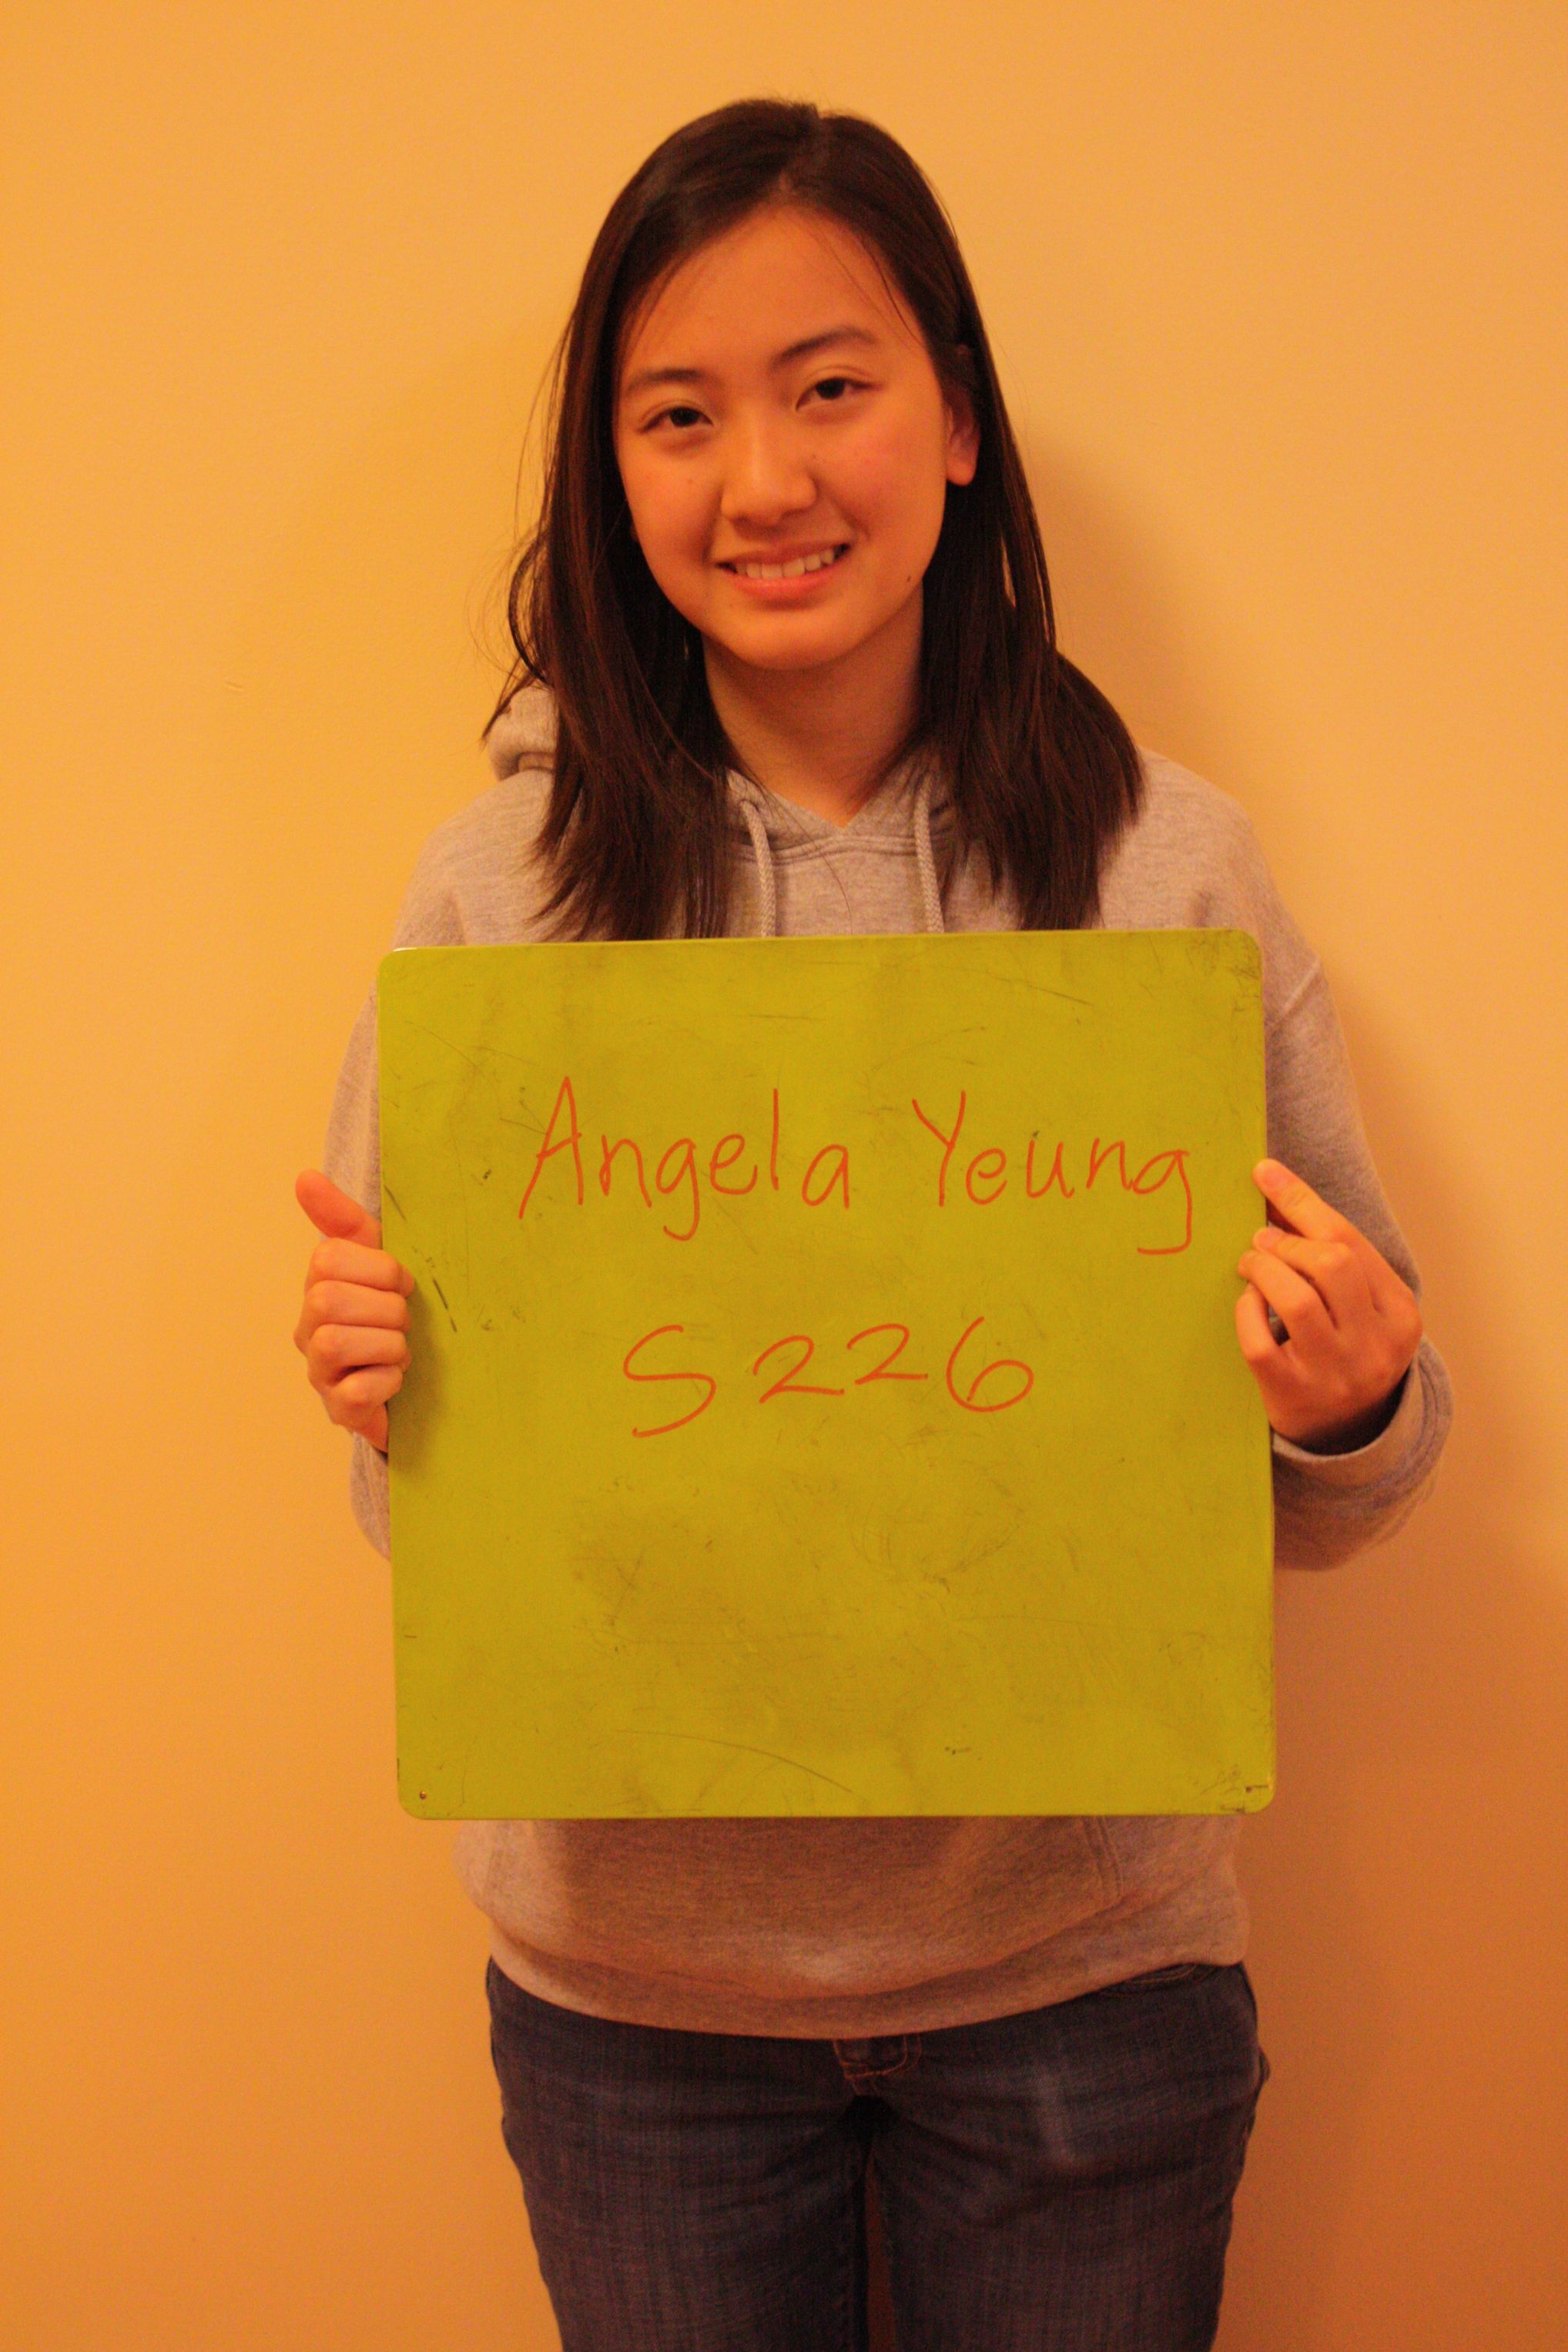 Angela Yeung
S226